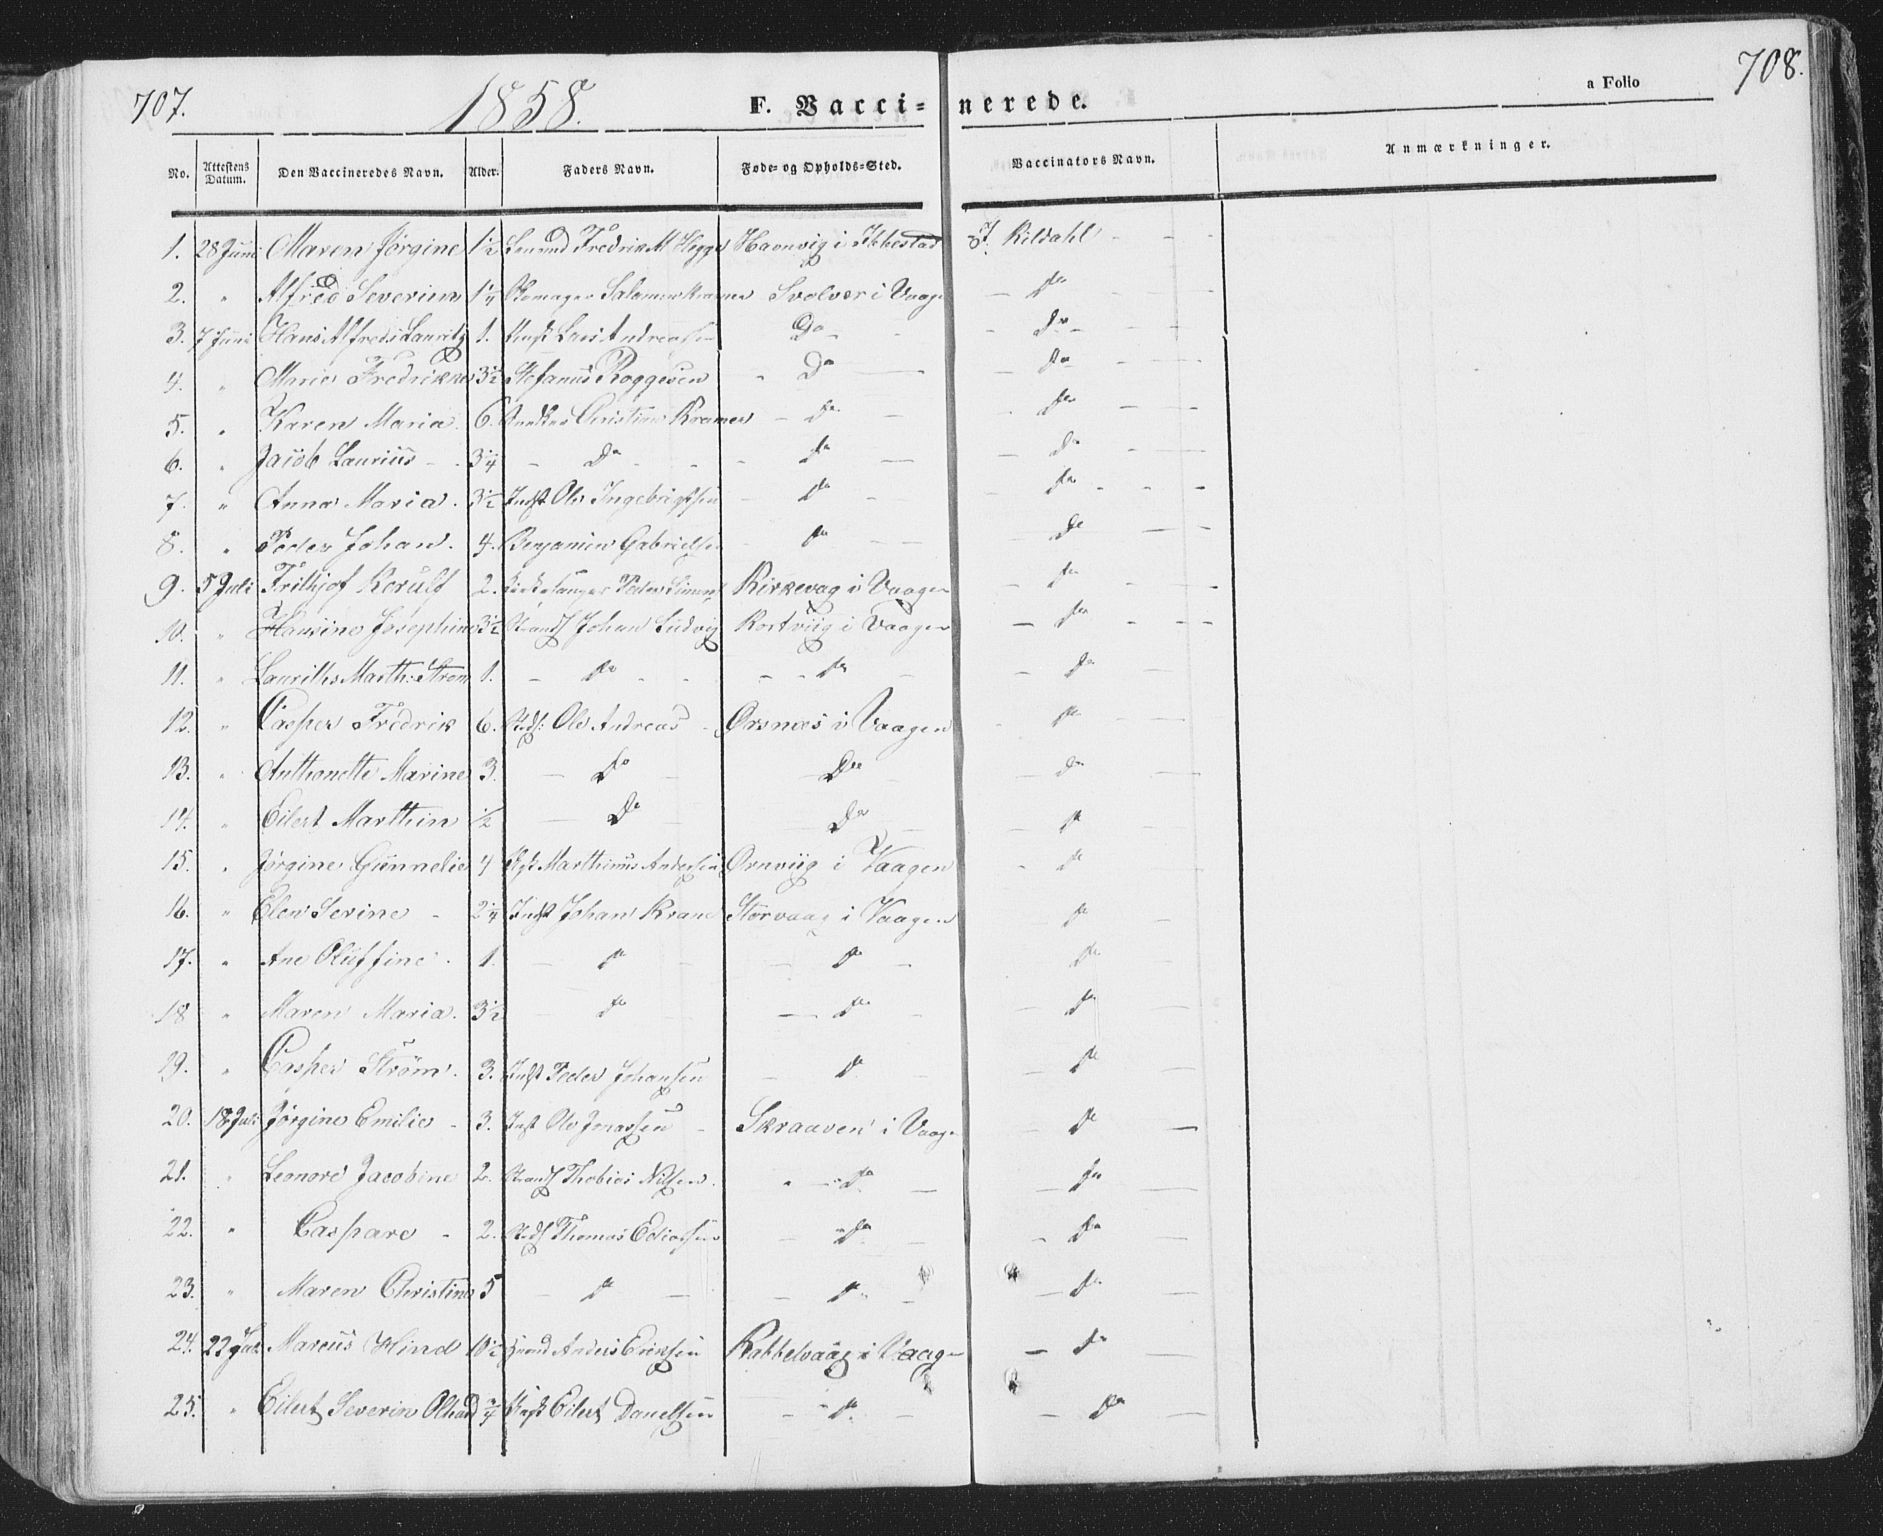 707.
1858.
F. Vacci-nerede.
a Folio
708.
No. Attestens Datum. Den Vaccineredes Navn. Alder. Faders Navn. Føde- og Opholds-Sted. Vaccinators Navn. Anmærkninger.
1. 28 Juni Maren Jørgine 1½ Fredrik M Hegge Havnvig i Ibbestad J. Kildahl
2. " Alfred Severin 1¼ Salomon Kramer Svolvær i Vaage do
3. 7 Juni Hans Alfred Lauritz 1. Lars Andreasen Do Do
4. " Maria Fredrikke 3½ Stefanus Roggesen Do do
5. " Karen Maria 6. Christian Kramer do do
6. " Jacob Laurius 3¼ Do do Do
7. " Anna Maria 3½ Indst Ole Ingebrigtsen do do
8. " Peder Johan. 4. Benjamin Gabrielsen do do
9. 5 Juli Frithjof Korulf 2. Kirkesanger Peder Simons Kirkevag i Vaagen do
10. " Hansine Josephine 3½ Strands Johan Ludvig Rostviig i Vaagen do
11. " Laurilhs Marth: Strøm 1. do do do
12. " Casper Fredrik 6. Ole Andreas Ørsnæs i Vaagen do
13. " Anthonette Marine 3. Do Do Do
14. " Eilert Marthin ½ Do Do do
15. " Jørgine Gunnelie 4 Marthinus Andersen Ørnviig i Vaagen do
16. " Elen Serine 2¼ Indst Johan Krane Storvaag i Vaagen do
17. " Ane Oluffine 1. do do do
18 " Maren Maria. 3½ do do do
19. " Casper Strøm. 3. Indst Peder Johansen do do
20. 18 Juli Jørgine Emilie 3. Inst Ole Jonassen Skraaven i Vaage do
21. " Leonore Jacobine 2. Strands Thobias Nilsen do do
22. " Caspare 2. Thomas Ediassen do do
23. " Maren Christine 5 do do do
24. 22 Juli Marcus Hind 10½ Anders Eriksen Kabbelvaag i Vaage do
25. " Eilert Severin ¾ Eilert Danielsen do do